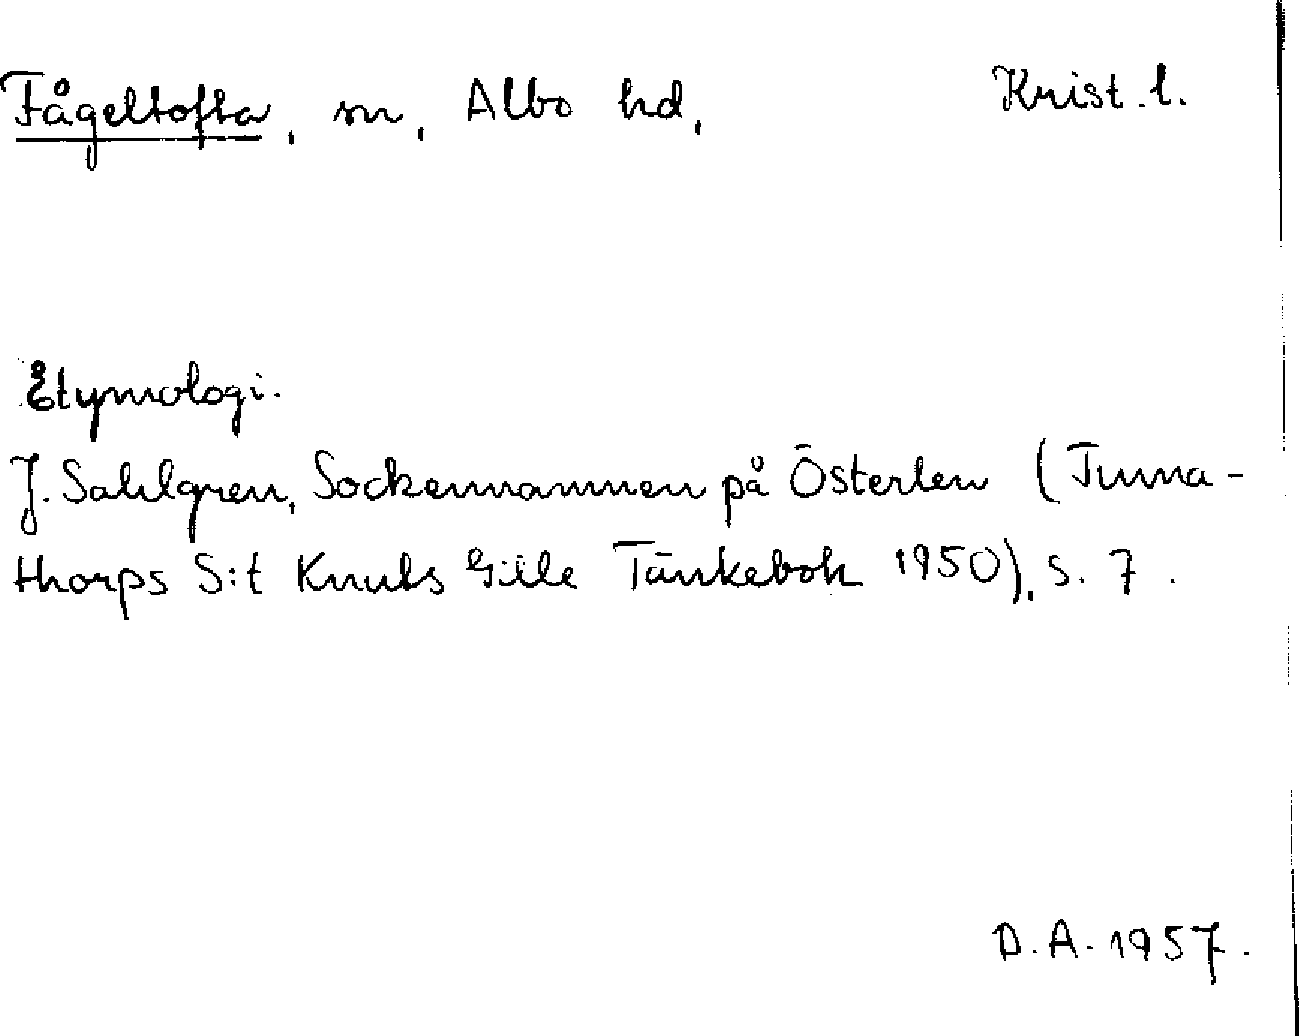 Fågeltofta, sn, Albo hd, Krist. l.
Etymologi.
J. Sahlgren, Sockennamnen på Österlen (Tuma-
thorps S:t Knuts Gille Tänkebok 1950), s. 7.
D. A. 1957.